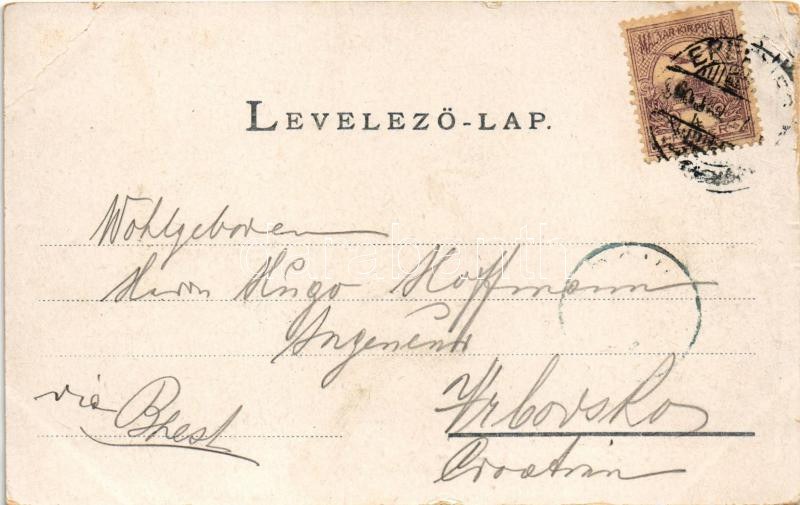 LEVELEZŐ-LAP.
MAGYAR KIR. POSTA
Wohlgeboren
Herrn Hugo Hoffmann
Ingenieur
via Bpest
Vrbovsko
Croatien
darabanth